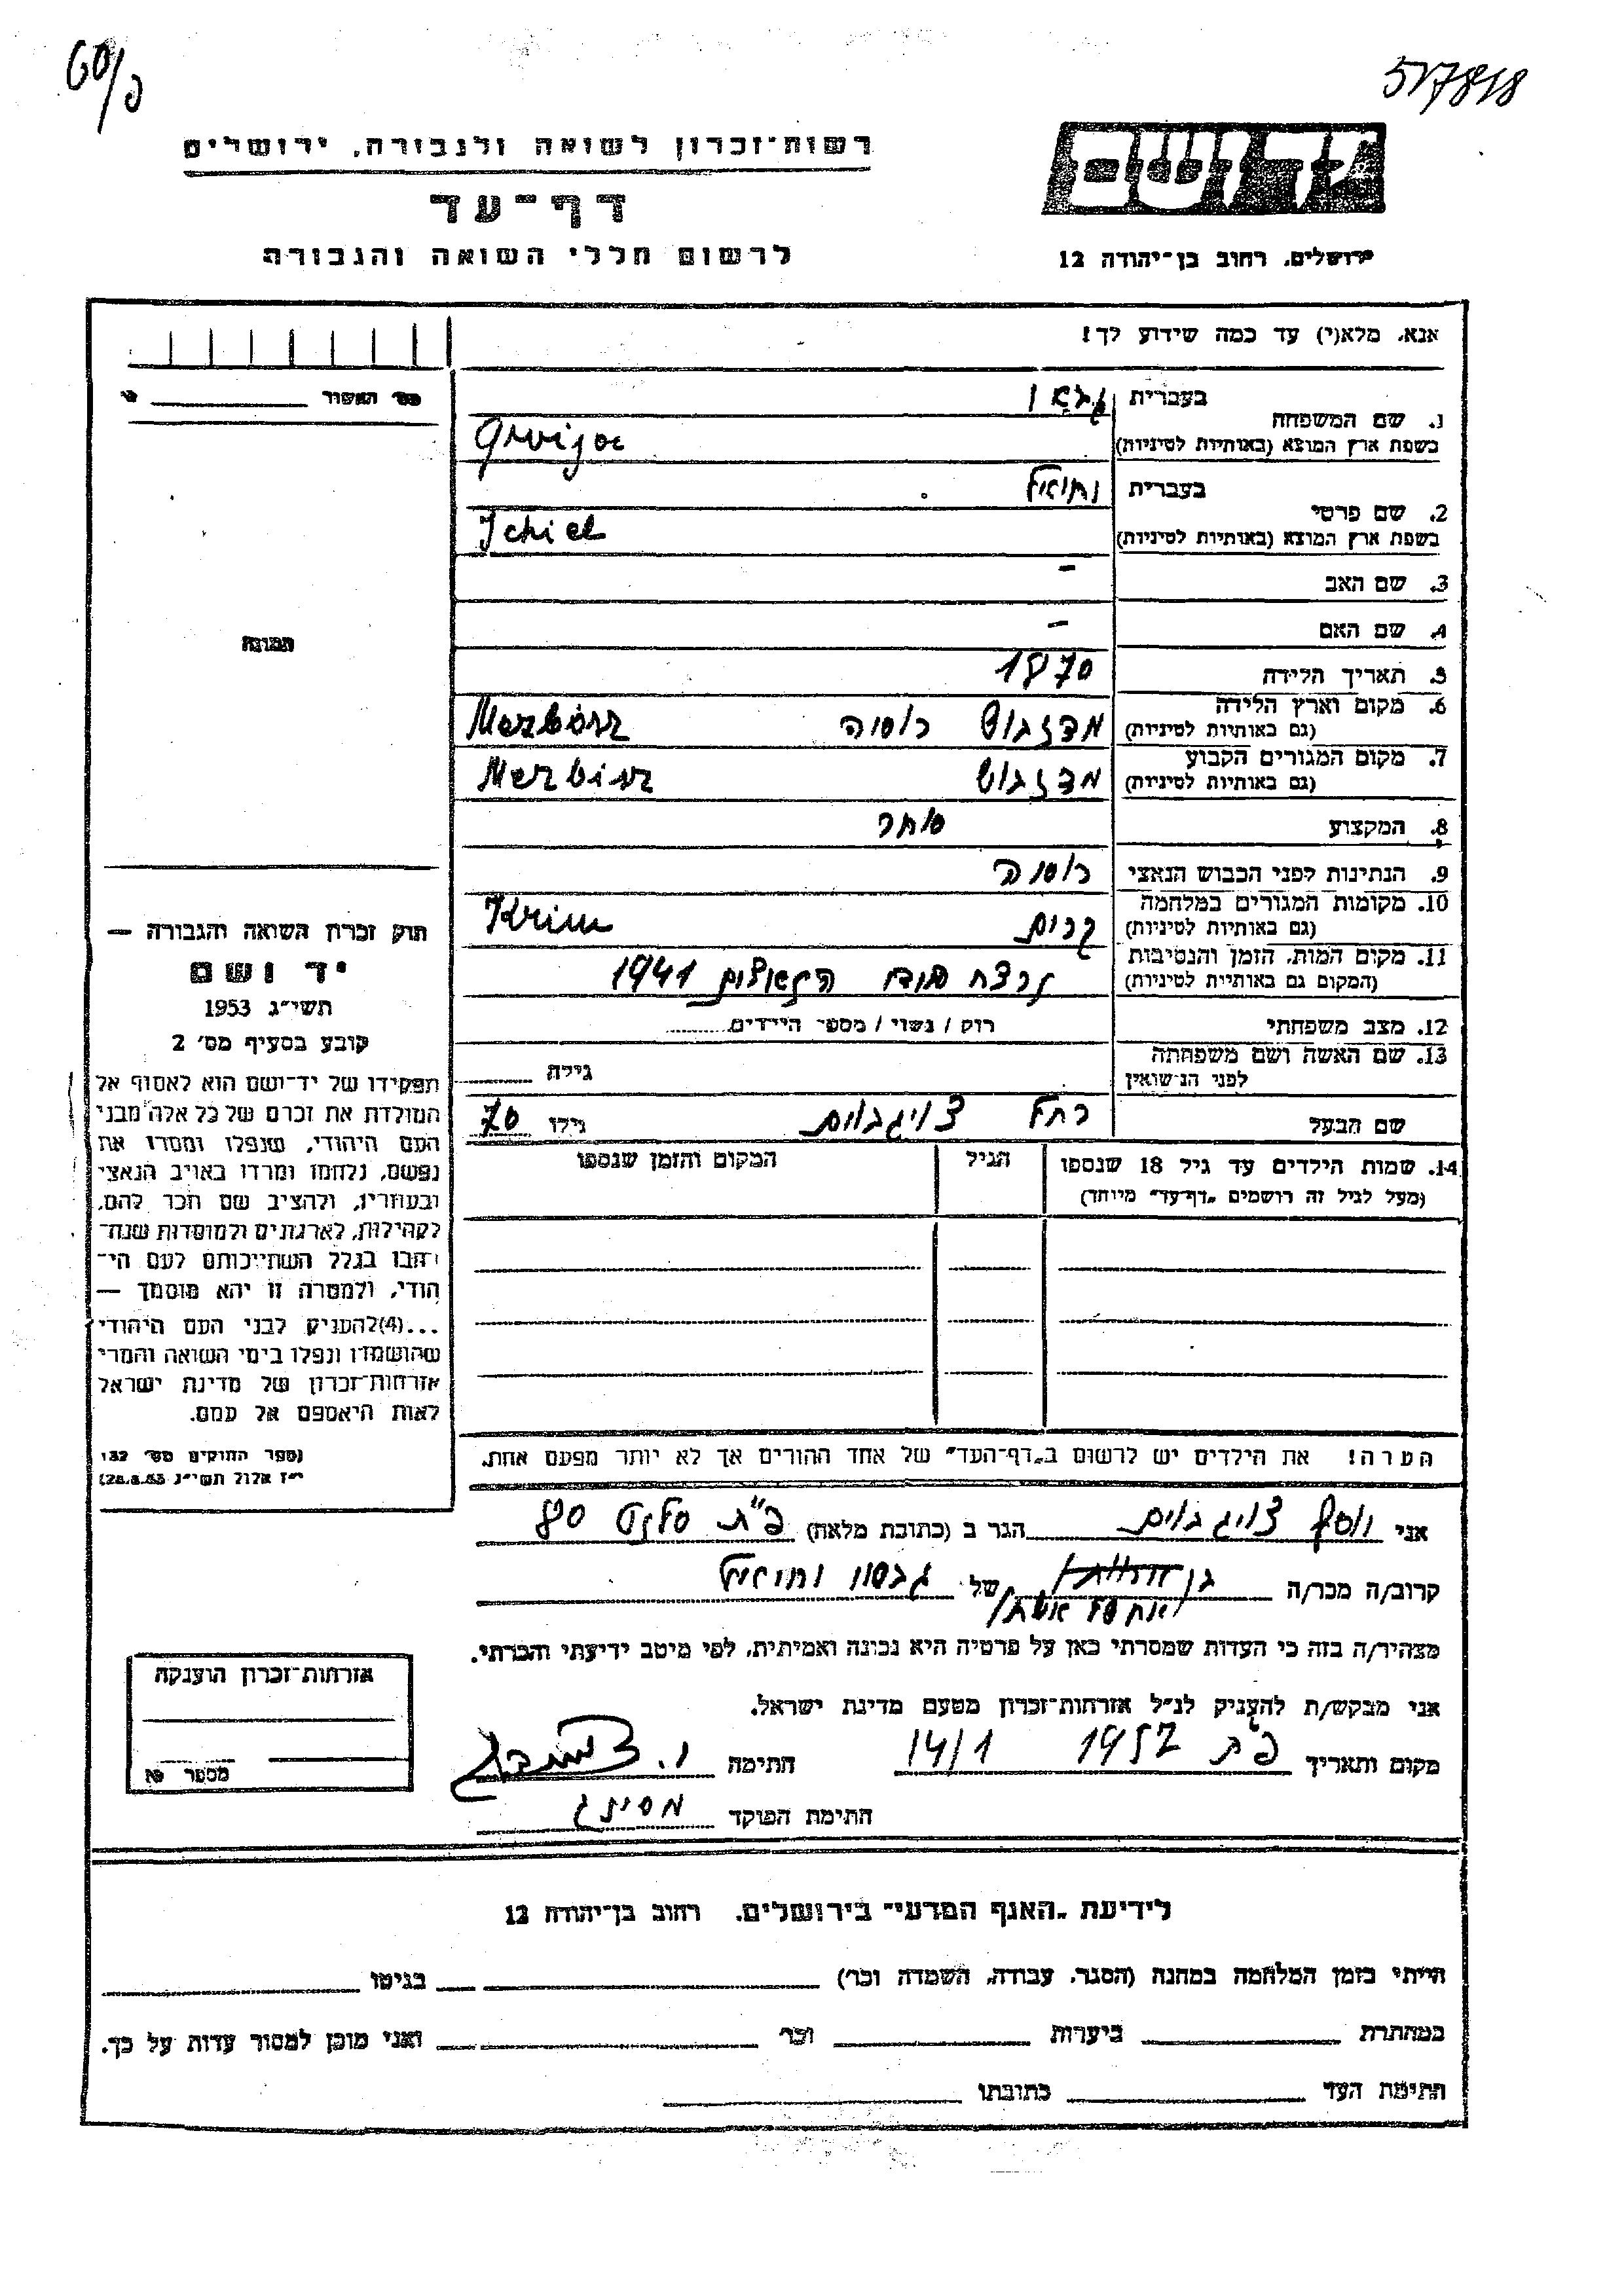 60/כ
517818
רשות־זכרון לשואה ולגבורה, ירושלים
דף־עד
לרשום חללי השואה והגבורה
יד ושם
ירושלים, רחוב בן־יהודה 12
אנא, מלא(י) עד כמה שידוע לך!
מס׳ האשור
1. שם המשפחה
בעברית
בשפת ארץ המוצא (באותיות לטיניות)
2. שם פרטי
בעברית
בשפת ארץ המוצא (באותיות לטיניות) Ichiel
3. שם האב –
4. שם האם –
תמונה
5. תאריך הלידה 1870
6. מקום וארץ הלידה
(גם באותיות לטיניות) רוסיה
7. מקום המגורים הקבוע
(גם באותיות לטיניות)
8. המקצוע סוחר
9. הנתינות לפני הכבוש הנאצי רוסיה
10. מקומות המגורים במלחמה
(גם באותיות לטיניות) קרים Krim
11. מקום המות, הזמן והנסיבות
(המקום גם באותיות לטיניות) נרצח הנאצים 1941
12. מצב משפחתי רוק / נשוי / מספר הילדים
13. שם האשה ושם משפחתה
לפני הנישואין גילה
שם הבעל רחל צויגבוים גילו 70
14. שמות הילדים עד גיל 18 שנספו
(מעל לגיל זה רושמים „דף־עד” מיוחד)
הגיל
המקום והזמן שנספו
חוק זכרון השואה והגבורה —
יד ושם
תשי״ג 1953
קובע בסעיף מס׳ 2
תפקידו של יד־ושם הוא לאסוף אל
המולדת את זכרם של כל אלה מבני
העם היהודי, שנפלו ומסרו את
נפשם, נלחמו ומרדו באויב הנאצי
ובעוזריו, ולהציב שם וזכר להם,
לקהילות, לארגונים ולמוסדות שנח־
רבו בגלל השתייכותם לעם הי־
הודי, ולמטרה זו יהא מוסמך —
...(4)להעניק לבני העם היהודי
שהושמדו ונפלו בימי השואה והמרי
אזרחות־זכרון של מדינת ישראל
לאות היאספם אל עמם.
(ספר החוקים מס׳ 132
י״ז אלול תשי״ג 28.8.53)
הערה! את הילדים יש לרשום ב„דף־העד” של אחד ההורים אך לא יותר מפעם אחת.
אני יוסף צויגבוים הגר ב (כתובת מלאה) פ״ת 80
קרוב/ה מכר/ה של
מצהיר/ה בזה כי העדות שמסרתי כאן על פרטיה היא נכונה ואמיתית, לפי מיטב ידיעתי והכרתי.
אני מבקש/ת להעניק לנ״ל אזרחות־זכרון מטעם מדינת ישראל.
מקום ותאריך פ״ת 1957 14/1 חתימה
חתימת הפוקד
אזרחות־זכרון הוענקה
מספר
לידיעת „האגף המדעי” בירושלים, רחוב בן־יהודה 12
הייתי בזמן המלחמה במחנה (הסגר, עבודה, השמדה וכר׳) בגיטו
במחתרת ביערות וכר׳ ואני מוכן למסור עדות על כך.
חתימת העד כתובתו